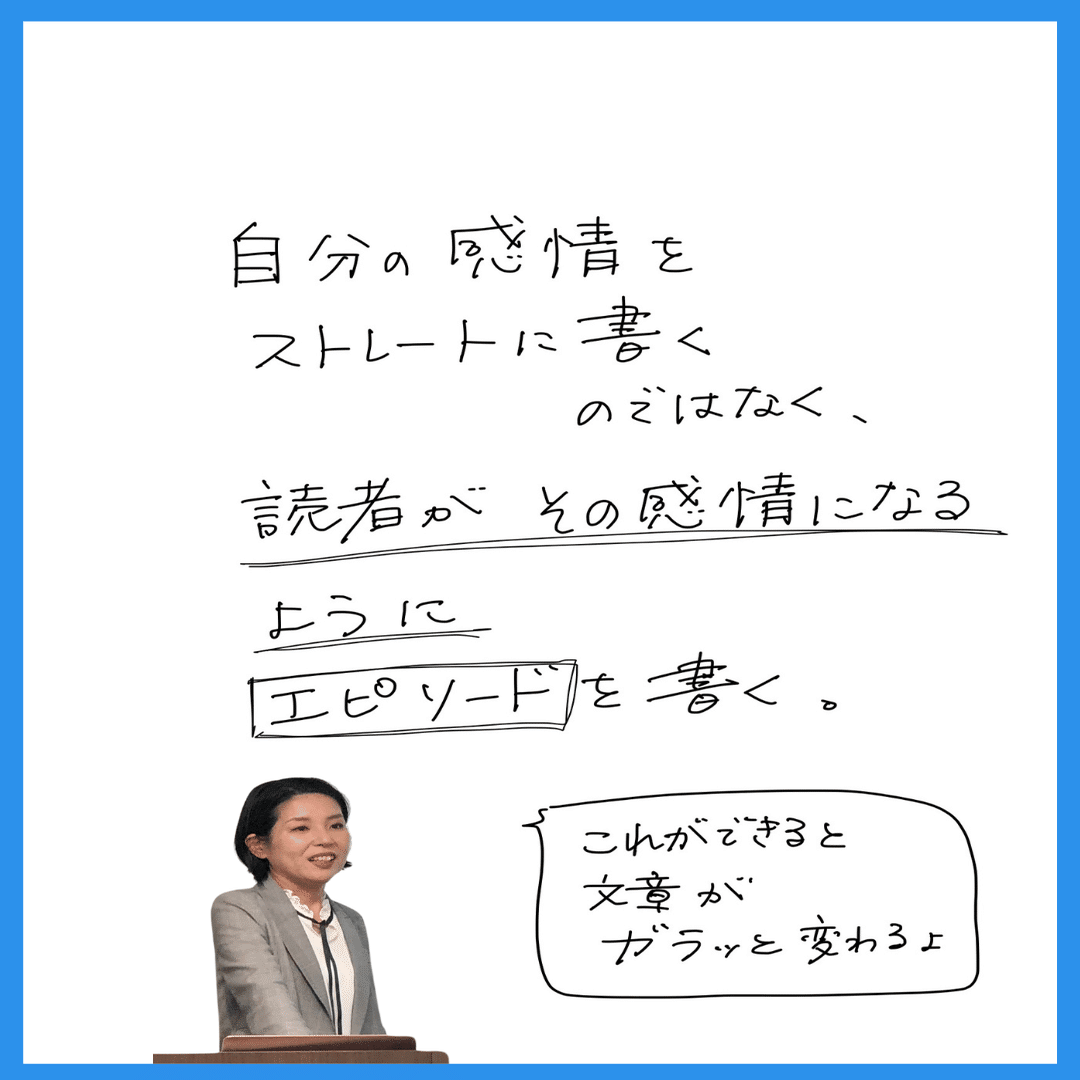 自分の感情を
ストレートに書く
のではなく、
読者がその感情になる
ように
エピソードを書く。
これができると
文章が
ガラッと変わるよ